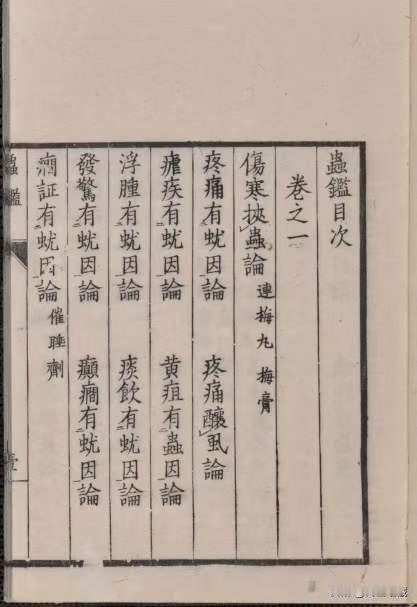 蟲鑑目次
卷之一
傷寒挾蟲論 連梅丸 梅膏
疼痛有蚘因論 疼痛釀虱論
瘧疾有蚘因論 黄疸有蟲因論
浮腫有蚘因論 痰飲有蚘因論
發驚有蚘因論 癲癇有蚘因論
証有蚘因論 催睡劑
蟲鑑